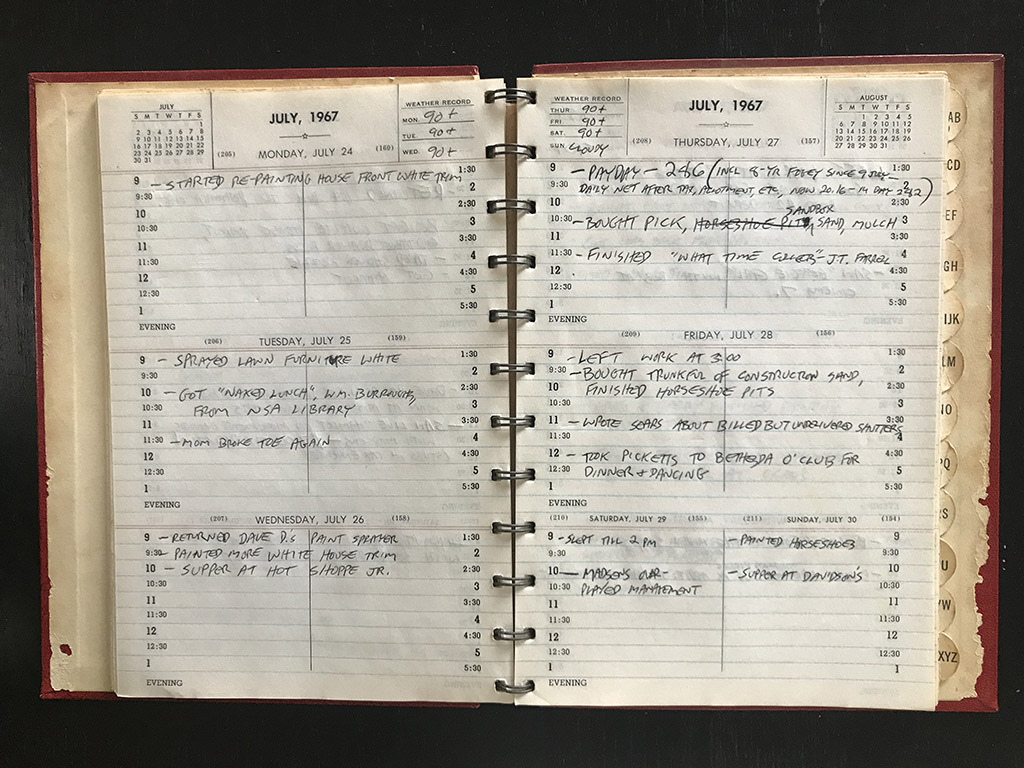 JULY
S M T W T F S
1
2 3 4 5 6 7 8
9 10 11 12 13 14 15
16 17 18 19 20 21 22
23 24 25 26 27 28 29
30 31
JULY, 1967
WEATHER RECORD
MON. 90+
TUE. 90+
WED. 90+
(205) MONDAY, JULY 24 (160)
9 – STARTED RE-PAINTING HOUSE FRONT WHITE TRIM 1:30
9:30 2
10 2:30
10:30 3
11 3:30
11:30 4
12 4:30
12:30 5
1 5:30
EVENING
(206) TUESDAY, JULY 25 (159)
9 – SPRAYED LAWN FURNITURE WHITE 1:30
9:30 2
10 – GOT "NAKED LUNCH", WM. BURROUGHS, 2:30
10:30 FROM NSA LIBRARY 3
11 3:30
11:30 – MOM BROKE TOE AGAIN 4
12 4:30
12:30 5
1 5:30
EVENING
(207) WEDNESDAY, JULY 26 (158)
9 – RETURNED DAVE D.'S PAINT SPRAYER 1:30
9:30 – PAINTED MORE WHITE HOUSE TRIM 2
10 – SUPPER AT HOT SHOPPE JR. 2:30
10:30 3
11 3:30
11:30 4
12 4:30
12:30 5
1 5:30
EVENING
WEATHER RECORD
THUR. 90+
FRI. 90+
SAT. 90+
SUN. CLOUDY
JULY, 1967
AUGUST
S M T W T F S
1 2 3 4 5
6 7 8 9 10 11 12
13 14 15 16 17 18 19
20 21 22 23 24 25 26
27 28 29 30 31
(208) THURSDAY, JULY 27 (157)
9 – PAYDAY – 286 (INCL 8-YR FOGEY SINCE 9 JULY – 1:30
9:30 DAILY NET AFTER TAX, ALLOTMENT, ETC., NOW 20.16 – 14 DAY 282) 2
10 SANDBOX 2:30
10:30 – BOUGHT PICK, HORSESHOE PITS, SAND, MULCH 3
11 3:30
11:30 – FINISHED "WHAT TIME COLLECTS" – J.T. FARREL 4
12 4:30
12:30 5
1 5:30
EVENING
(209) FRIDAY, JULY 28 (156)
9 – LEFT WORK AT 3:00 1:30
9:30 – BOUGHT TRUNKFUL OF CONSTRUCTION SAND, 2
10 FINISHED HORSESHOE PITS 2:30
10:30 3
11 – WROTE SEARS ABOUT BILLED BUT UNDELIVERED SHUTTERS 3:30
11:30 4
12 – TOOK PICKETTS TO BETHESDA O'CLUB FOR 4:30
12:30 DINNER + DANCING 5
1 5:30
EVENING
(210) SATURDAY, JULY 29 (155) (211) SUNDAY, JULY 30 (154)
9 – SLEPT TILL 2 PM – PAINTED HORSESHOES 9
9:30 9:30
10 – MADSENS OVER – – SUPPER AT DAVIDSON'S 10
10:30 PLAYED MANAGEMENT 10:30
11 11
11:30 11:30
12 12
12:30 12:30
1 1
EVENING
AB
CD
EF
GH
IJK
LM
NO
PQ
RS
U
VW
XYZ